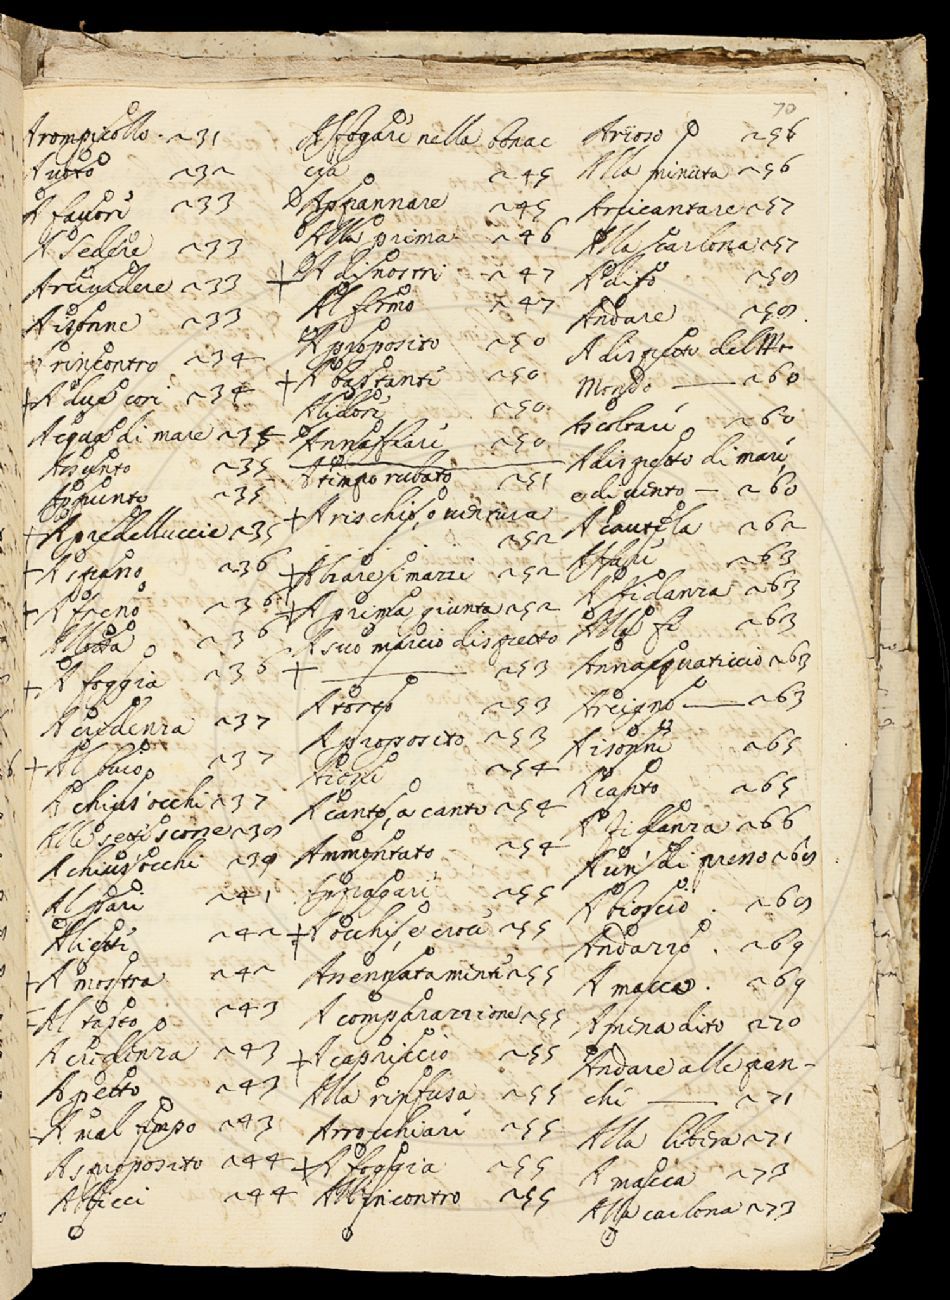 70
Arompicollo. ~31
Auoto ~32
A fauore ~33
A sedere ~33
Ariuedere ~33
Aisonne ~33
rincontro ~34
+A due cori ~34
Acqua di mare ~34
Assunto ~35
Appunto ~35
+A predelluccie ~35
+A piano ~36
+A freno ~36
Allotta ~36
+A foggia ~36
A credenza ~37
+Al buio ~37
A chius'occhi ~37
Alle scorse ~39
A chius'occhi ~39
Al pari ~41
~42
+A mostra ~42
Al tasto ~43
A credenza ~43
A petto ~43
A mal tempo ~43
A sproposito ~44
~44
A sfogare nella bonac
cia ~45
Appannare ~45
Alla prima ~46
+A di nostri ~47
Al fermo ~47
A proposito ~50
+A bastante ~50
~50
Annaffiare ~50
A tempo rubato ~51
+A rischio, o uentura
~52
~52
+A prima giunta ~52
A suo marcio dispetto
+ ——— ~53
A torto ~53
A proposito ~53
~54
A canto, a canto ~54
Ammontato ~54
~55
+A occhi, e croce ~55
Assennatamente ~55
A comparazione ~55
+A capriccio ~55
Alla rinfusa ~55
Arrocchiare ~55
+A foggia ~55
All'incontro ~55
Arioso ~56
Alla minuta ~56
Arcicantare ~57
Alla scarlona ~57
~59
Andare ~59.
A dispetto del
Mondo —— ~60
Ascoltare ~60
A dispetto di mare,
e di uento — ~60
A cautela ~62
~63
A fidanza ~63
Alla fe ~63
Annacquaticcio ~63
Arcigno —— ~63
Aisonne ~65
A canto ~65
A fidanza ~66
preso ~69
A bioscio. ~69
~69
A macca. ~69
A mena dito ~70
Andare alle pan-
che —— ~71
Alla libera ~71
A macca ~73
Alla carlona ~73